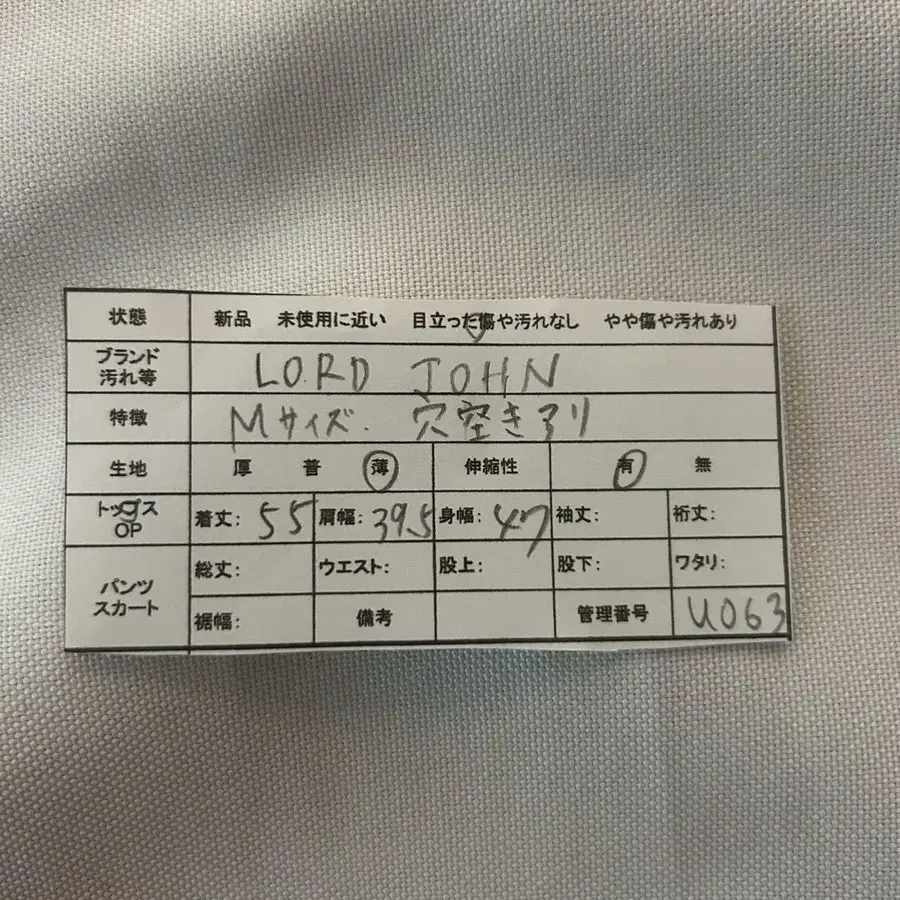 状態 新品 未使用に近い 目立った傷や汚れなし やや傷や汚れあり
ブランド
汚れ等 LORD JOHN
特徴 Mサイズ. 穴空きアリ
生地 厚 普 薄 伸縮性 有 無
トップス
OP 着丈: 55 肩幅: 39.5 身幅: 47 袖丈: 裄丈:
パンツ
スカート 総丈: ウエスト: 股上: 股下: ワタリ:
裾幅: 備考 管理番号 U063